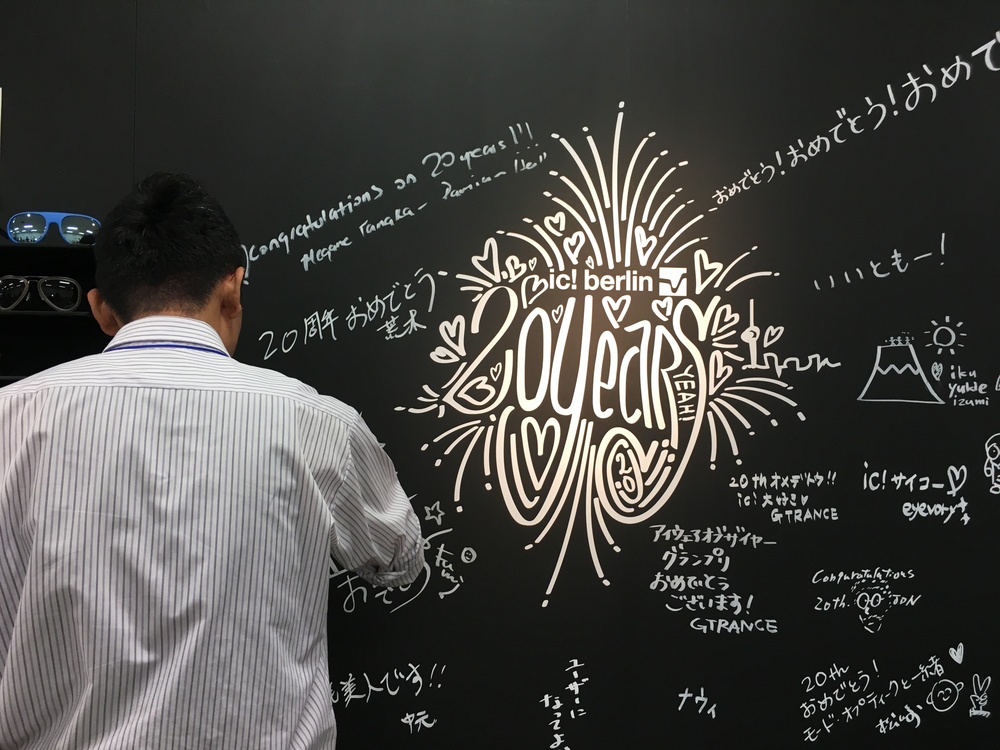 Congratulations on 20 years!!!
Megane Tanaka -
20周年 おめでとう
荒木
おめでとう!おめでとう!おめで
ic! berlin
20 years
YEAH!
2.0
いいともー!
iku
yukie
izumi
20th オメデトウ!!
ic! 大好き
GTRANCE
ic! サイコー
eyevory
アイウェアオブザイヤー
グランプリ
おめでとう
ございます!
GTRANCE
Congratulations
20th. JDN
美人です!!
中元
ユーザーに
なってよ
ナヴィ
20th
おめでとう!
モード・オプティークと一緒